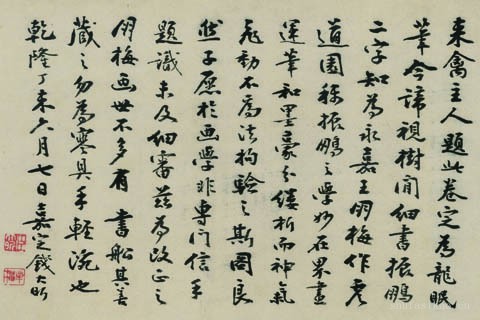 來禽主人題此卷定為龍眠
筆今諦視樹間細書振鵬
二字知為永嘉王朋梅作虞
道園稱振鵬之學妙在界畫
運筆和墨豪分縷析而神氣
飛動不為法拘驗之斯圖良
然子愿於画學非專門信手
題識未及細審茲為改正之
朋梅画世不多有 書船其善
藏之勿為寒具手輕浼也
乾隆丁未六月七日嘉定錢大昕